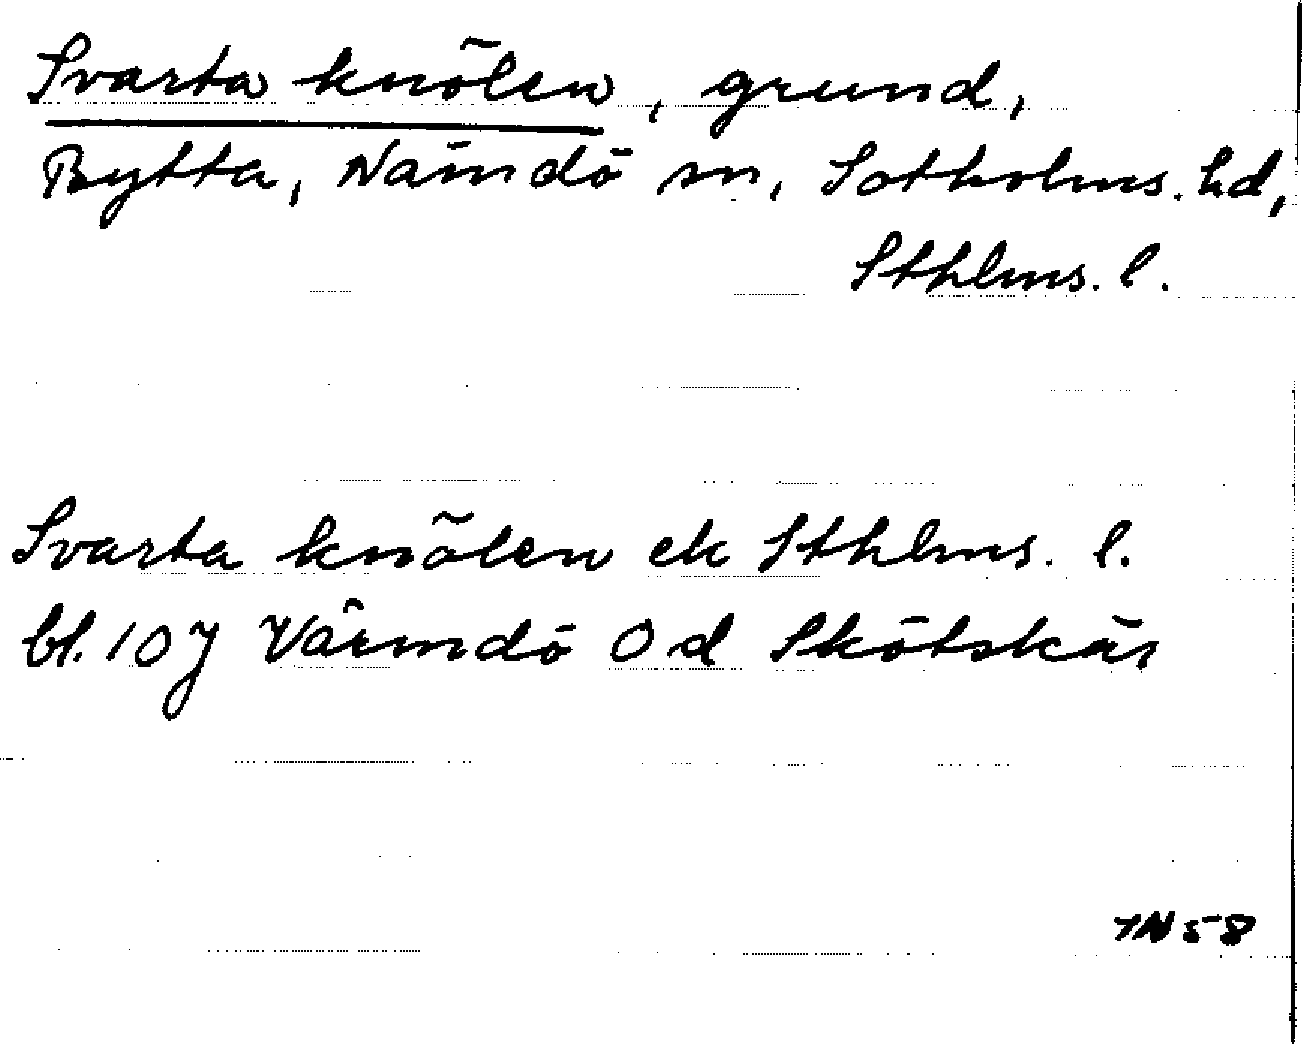 Svarta knölen, grund,
Bytta, Nämdö sn, Sotholms. hd,
Sthlms. l.
Svarta knölen ek Sthlms. l.
bl. 10J Värmdö Od Skötskär